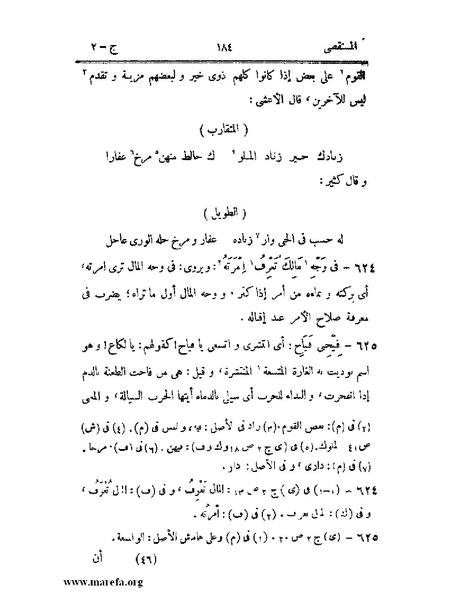 المستقصى ١٨٤ ج – ٢
القوم ٢ على بعض إذا كانوا كلهم ذوى خير و لبعضهم مزية و تقدم ٣
ليس للآخرين، قال الأعشى:
( المتقارب )
زنادك خير زناد الملو ٤ ك خالط منهن ٥ مرخ ٦ عفارا
و قال كثير:
( الطويل )
له حسب فى الحى وار ٧ زناده عفار و مرخ حثه الورى عاجل
٦٢٤ – فى وَجْهِ ١ مَالِكَ تَعْرِفُ ١ اِمْرَتَهُ ٢: و يروى: فى وجه المال ترى إمرته،
أى بركته و نماءه من أمر إذا كثر، و وجه المال أول ما تراه؛ يضرب فى
معرفة صلاح الأمر عند إقباله.
٦٢٥ – فِيْحِى فَيَاحِ: أى انتشرى و اتسعى يا فياح! كقولهم: يا لكاع! و هو
اسم نوديت به الغارة المتسعة ١ المنتشرة، و قيل: هى من فاحت الطعنة بالدم
إذا انفجرت، و النداء للحرب أى سيلى بالدماء أيتها الحرب السيالة، و المعنى
(٢) فى (م): بعض القوم. (٣) زاد فى الأصل: فيه، و ليس فى (م). (٤) فى (ش)
ص ٤١ لملوك. (٥) فى (ى) ج ٢ ص ١٨ و ك و ف): فيهن. (٦) فى (ف): مرخا.
(٧) فى (م): دارى، و فى الأصل: دار.
٦٢٤ – (١–١) فى (ى) ج ٢ ص ١٣: المال تَعْرِفُ، و فى (ف): المال تُعْرَفُ،
و فى (ك): المال تعرف. (٢) فى (ف): أمرته.
٦٢٥ – (ى) ج ٢ ص ٢٠. (١) فى (م) و على هامش الأصل: الواسعة.
(٤٦) أن
www.marefa.org